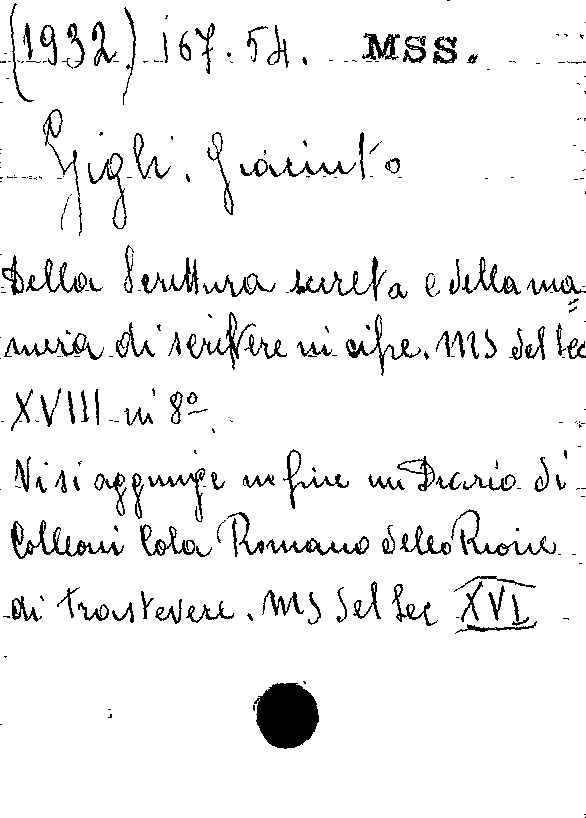 (1932) 167. 54. MSS.
Gigli. Giacinto
Della Scrittura secreta e della ma=
niera di scrivere in cifre. MS del Sec
XVIII in 8º
Vi si aggiunge in fine un Diario di
Colleoni Cola Romano dello Rione
di Trastevere. MS del Sec XVI